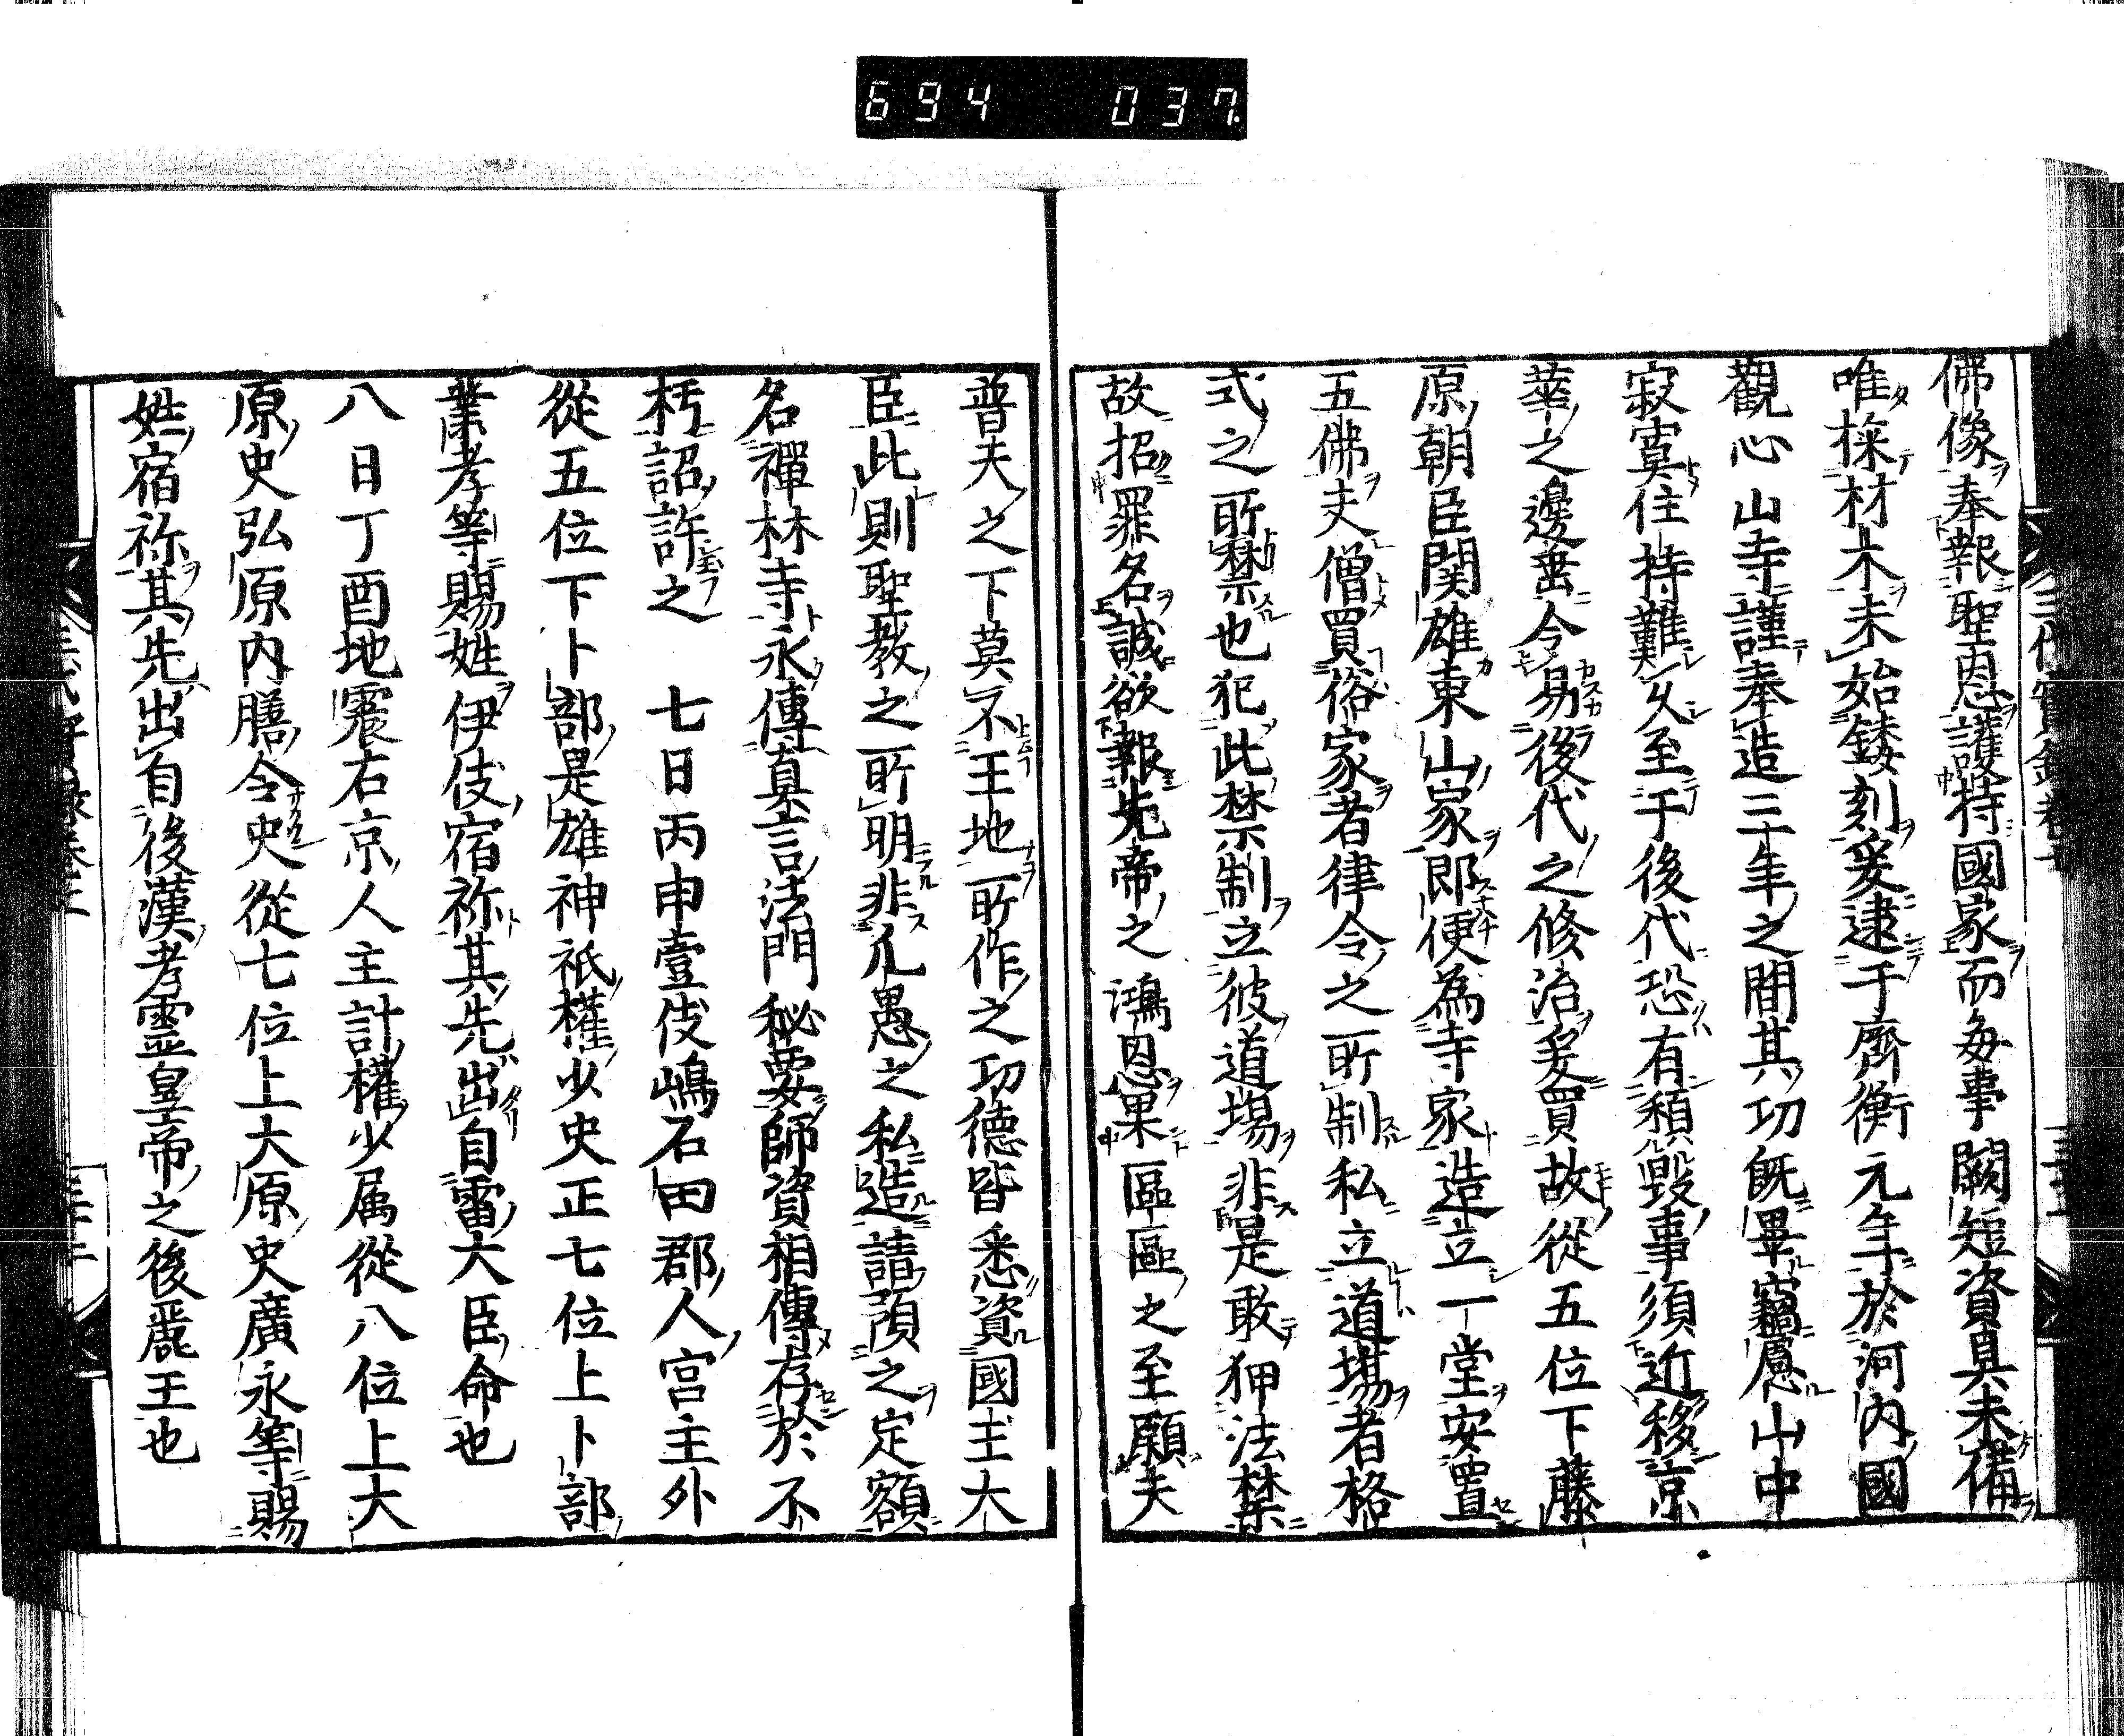 694 037
佛像奉報聖恩護持國家而每事闕短資具未備
唯採材木未始鏤刻爰逮于齊衡元年於河內國
觀心山寺謹奉造三年之間其功既畢竊慮山中
寂寞住持難久至于後代恐有頽毀事須近移京
華之邊垂令易後代之修治爰買故從五位下藤
原朝臣関雄東山家即便為寺家造立一堂安置
五佛夫僧買俗家者律令之所制私立道場者格
式之所禁也犯此禁制立彼道場非是敢狎法禁
故招罪名誠欲報先帝之鴻恩果區區之至願夫
普天之下莫不王地所作之功德皆悉資國主大
臣此則聖教之所明非凡愚之私造請預之定額
名禪林寺永傳真言法門秘要師資相傳存於不
朽詔許之　七日丙申壹伎嶋石田郡人宮主外
從五位下卜部是雄神祇權少史正七位上卜部
業孝等賜姓伊伎宿祢其先出自雷大臣命也
八日丁酉地震右京人主計權少属從八位上大
原史弘原內膳令史從七位上大原史廣永等賜
姓宿祢其先出自後漢孝靈皇帝之後麗王也